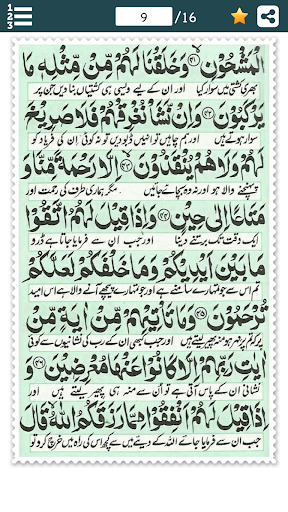 1
2
3
9 /16
الْمَشْحُوْنِ ﴿۴۱﴾ وَخَلَقْنَا لَهُمْ مِّنْ مِّثْلِهٖ مَا
بھری کشتی میں سوار کیا اور ان کے لیے ویسی ہی کشتیاں بنادیں جن پر
يَرْكَبُوْنَ ﴿۴۲﴾ وَاِنْ نَّشَاْ نُغْرِقْهُمْ فَلَا صَرِيْخَ
سوار ہوتے ہیں اور ہم چاہیں تو انہیں ڈبودیں تو نہ کوئی ان کی فریاد کو
لَهُمْ وَلَا هُمْ يُنْقَذُوْنَ ﴿۴۳﴾ اِلَّا رَحْمَةً مِّنَّا وَ
پہنچنے والا ہو اور نہ وہ بچائے جائیں مگر ہماری طرف کی رحمت اور
مَتَاعًا اِلٰى حِيْنٍ ﴿۴۴﴾ وَاِذَا قِيْلَ لَهُمُ اتَّقُوْا
ایک وقت تک برتنے دینا اور جب ان سے فرمایا جاتا ہے ڈرو
مَا بَيْنَ اَيْدِيْكُمْ وَمَا خَلْفَكُمْ لَعَلَّكُمْ
تم اس سے جو تمہارے سامنے ہے اور جو تمہارے پیچھے آنے والا ہے اس امید
تُرْحَمُوْنَ ﴿۴۵﴾ وَمَا تَاْتِيْهِمْ مِّنْ اٰيَةٍ مِّنْ
پر کہ تم پر مہر ہو تو منہ پھیر لیتے ہیں اور جب کبھی ان کے رب کی نشانیوں سے کوئی
اٰيٰتِ رَبِّهِمْ اِلَّا كَانُوْا عَنْهَا مُعْرِضِيْنَ ﴿۴۶﴾ وَ
نشانی ان کے پاس آتی ہے تو اس سے منہ ہی پھیر لیتے ہیں اور
اِذَا قِيْلَ لَهُمْ اَنْفِقُوْا مِمَّا رَزَقَكُمُ اللّٰهُ قَالَ
جب ان سے فرمایا جائے اللہ کے دیئے میں سے کچھ اس کی راہ میں خرچ کرو تو